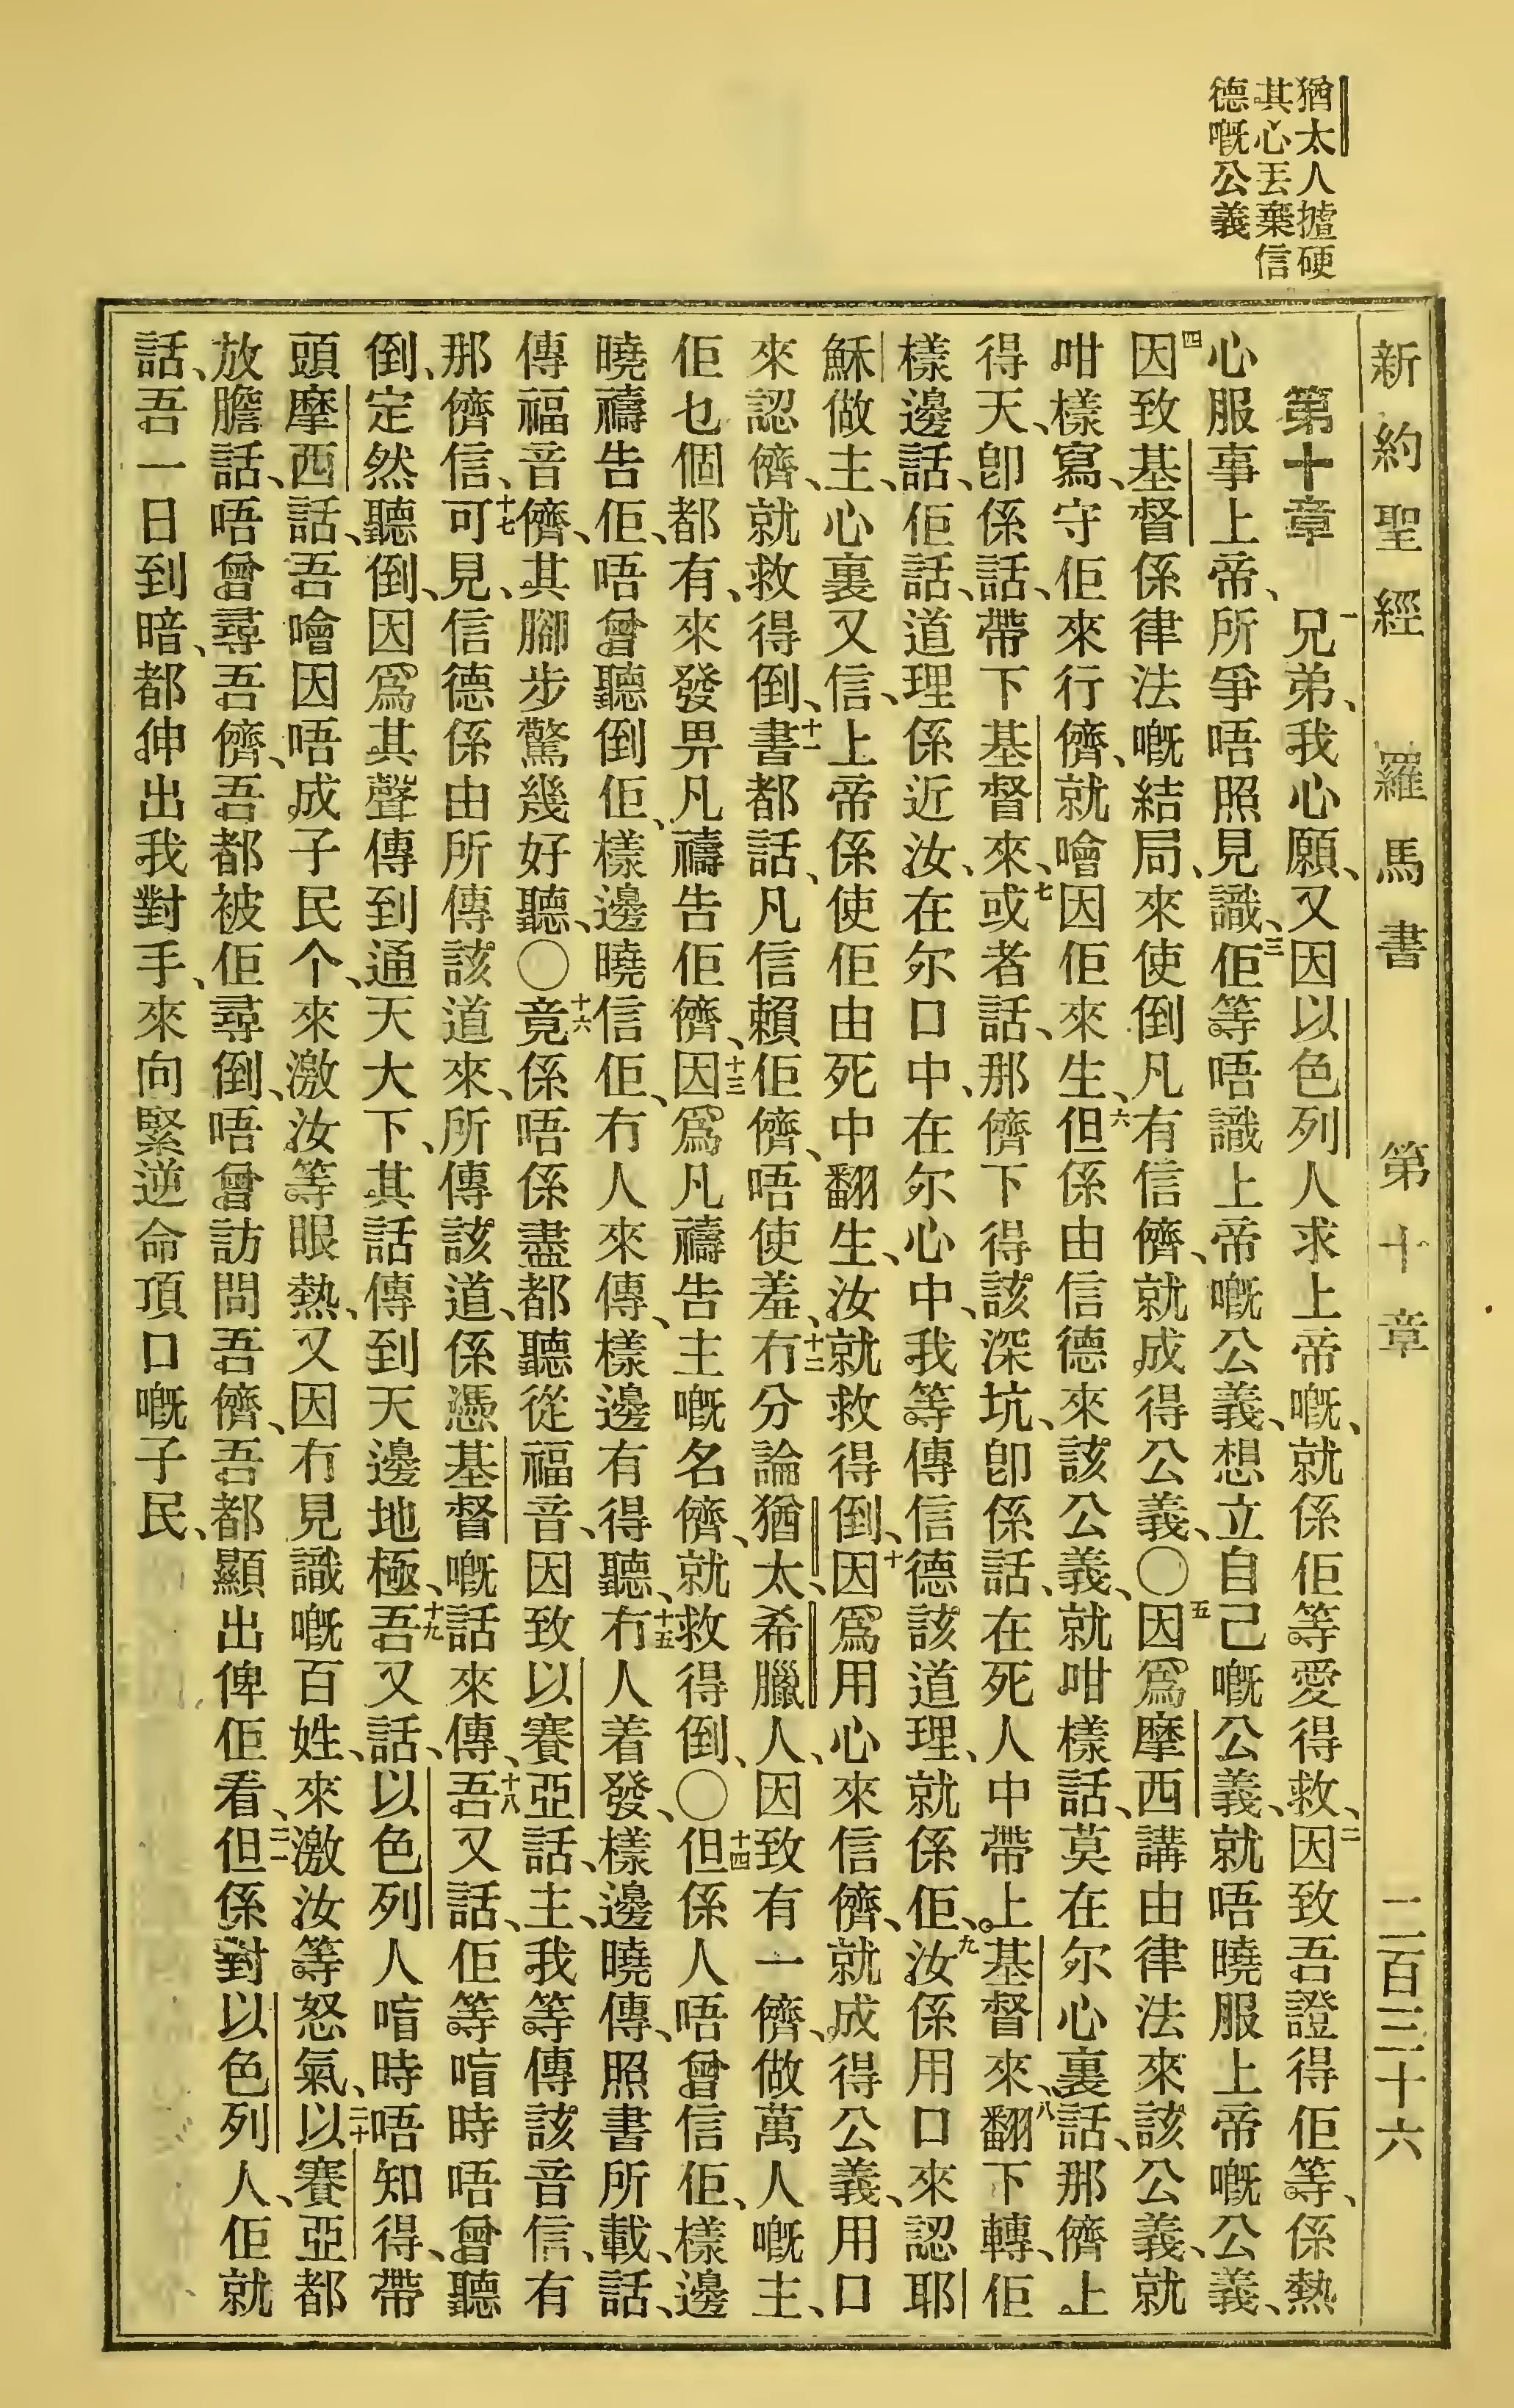 猶太人㨯硬
其心丟棄信
德嘅公義
新約聖經 羅馬書 第十章 二百三十六
第十章 一兄弟、我心願、又因以色列人求上帝嘅、就係佢等愛得救、二因致吾證得佢等、係熱
心服事上帝、所爭唔照見識、三佢等唔識上帝嘅公義、想立自己嘅公義、就唔曉服上帝嘅公義、
四因致基督係律法嘅結局、來使倒凡有信儕、就成得公義、〇五因爲摩西講由律法來該公義、就
咁樣寫、守佢來行儕、就噲因佢來生、六但係由信德來該公義、就咁樣話、莫在尔心裏話、那儕上
得天、卽係話、帶下基督來、七或者話、那儕下得該深坑、卽係話、在死人中帶上基督來、八翻下轉、佢
樣邊話、佢話、道理係近汝、在尔口中、在尔心中、我等傳信德該道理、就係佢。九汝係用口來認耶
穌做主、心裏又信、上帝係使佢由死中翻生、汝就救得倒、十因爲用心來信儕、就成得公義、用口
來認儕、就救得倒、十一書都話、凡信賴佢儕、唔使羞、十二冇分論猶太、希臘人、因致有一儕、做萬人嘅主、
佢乜個都有、來發畀凡禱告佢儕、十三因爲凡禱告主嘅名儕、就救得倒、〇十四但係人唔曾信佢、樣邊
曉禱告佢、唔曾聽倒佢、樣邊曉信佢、冇人來傳、樣邊有得聽、十五冇人着發、樣邊曉傳、照書所載、話、
傳福音儕、其腳步驚幾好聽、〇十六竟係唔係盡都聽從福音、因致以賽亞話、主、我等傳該音信、有
那儕信、十七可見、信德係由所傳該道來、所傳該道、係憑基督嘅話來傳、十八吾又話、佢等㫾時唔曾聽
倒、定然聽倒、因爲其聲傳到通天大下、其話傳到天邊地極、十九吾又話、以色列人㫾時唔知得、帶
頭摩西話、吾噲因唔成子民个、來激汝等眼熱、又因冇見識嘅百姓、來激汝等怒氣、二十以賽亞都
放膽話、唔曾尋吾儕、吾都被佢尋倒、唔曾訪問吾儕、吾都顯出俾佢看、二一但係對以色列人、佢就
話、吾一日到暗、都伸出我對手、來向緊逆命頂口嘅子民、